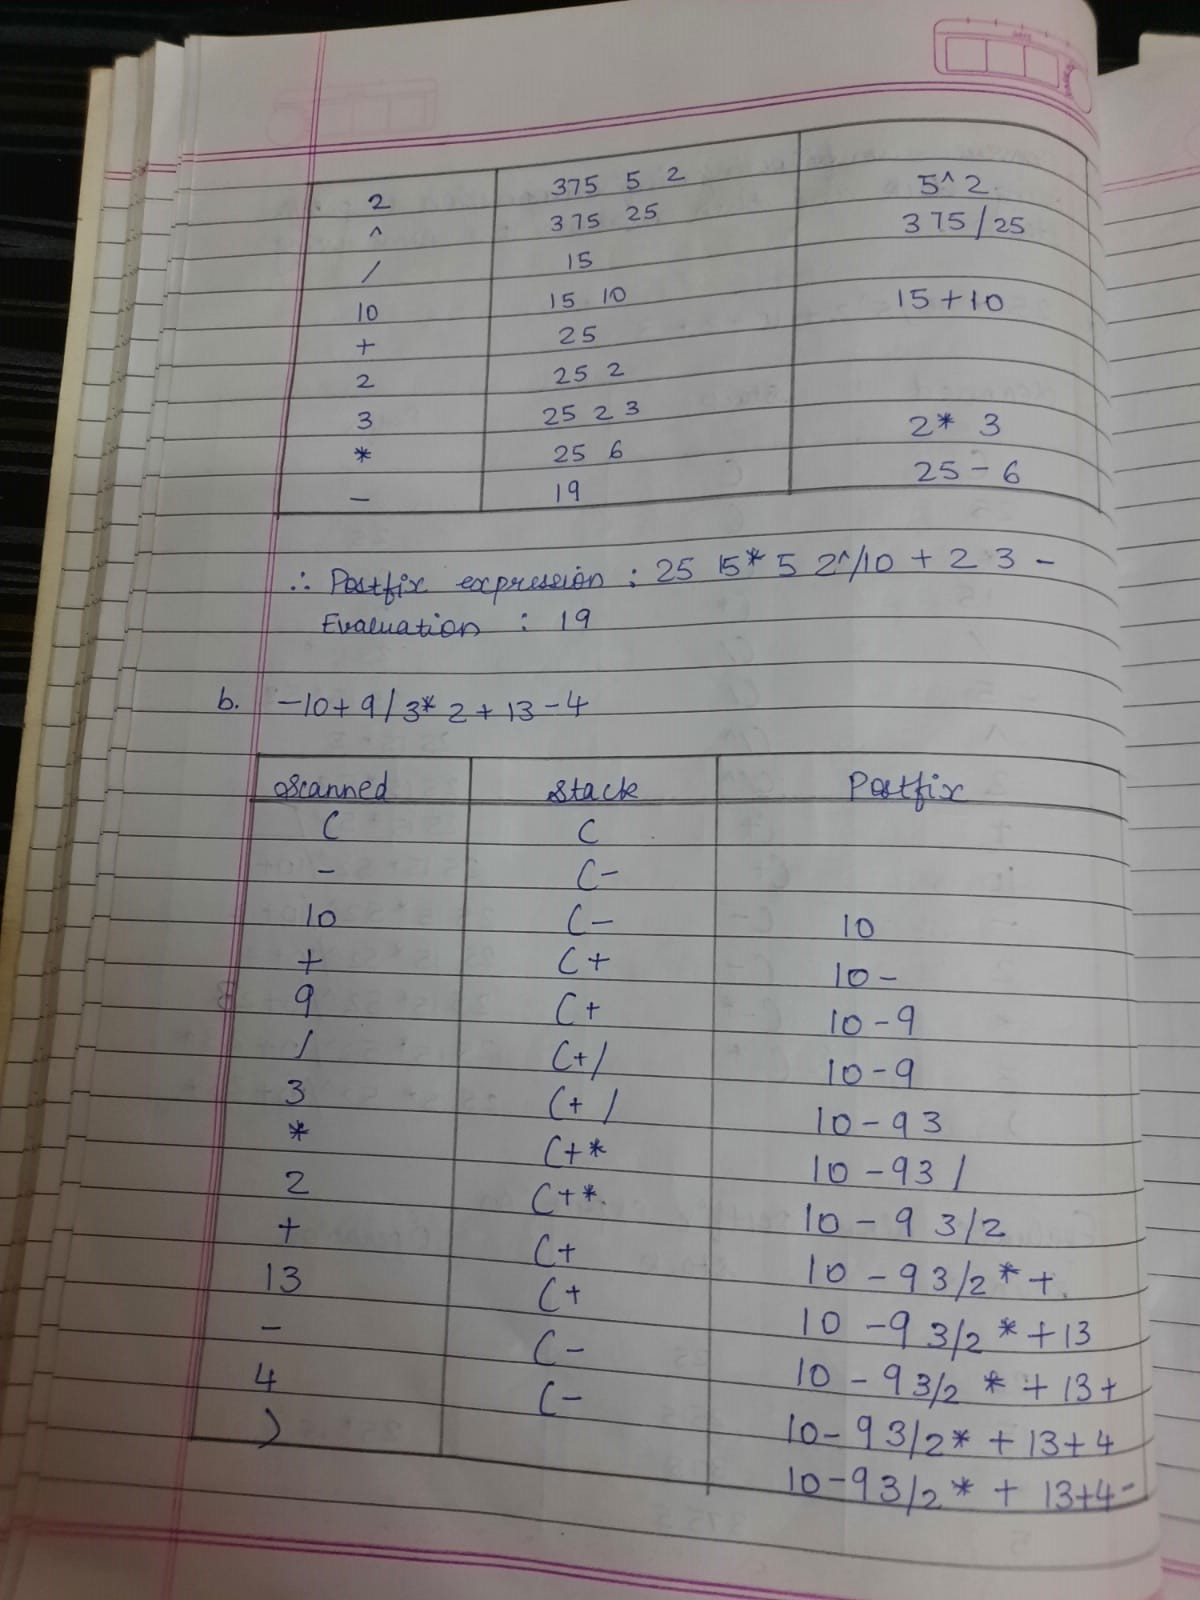 2 375 5 2 5^2
^ 375 25 375/25
/ 15
10 15 10 15+10
+ 25
2 25 2
3 25 2 3 2* 3
* 25 6 25-6
- 19
∴ Postfix expression : 25 15* 5 2^/10 + 2 3 -
Evaluation : 19
b. -10+9/3*2+13-4
Scanned Stack Postfix
( (
- (-
10 (- 10
+ (+ 10-
9 (+ 10-9
/ (+/ 10-9
3 (+/ 10-93
* (+* 10-93/
2 (+* 10-93/2
+ (+ 10-93/2*+
13 (+ 10-93/2*+13
- (- 10-93/2*+13+
4 (- 10-93/2*+13+4
) 10-93/2*+13+4-